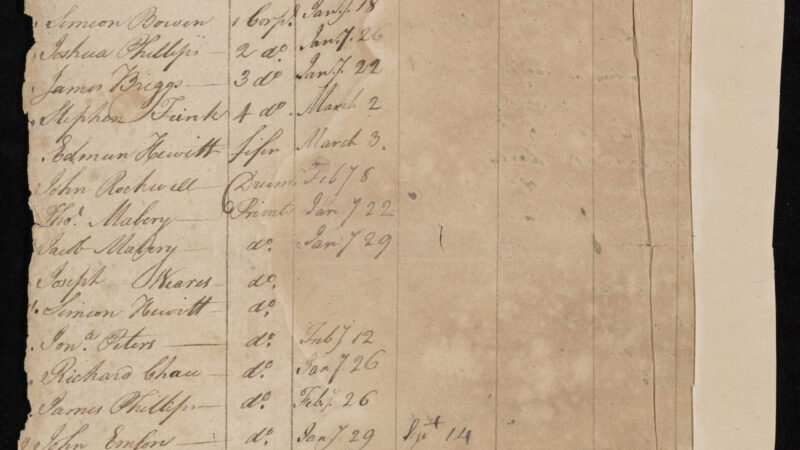 Simeon Bowen 1 Corpl Jany. 18
Joshua Phillips 2 do. Jany. 26
James Briggs 3 do Jany. 22
Stephen Trink 4 do. March 2
Edmun Hewitt fifer March 3.
John Rockwell Drumr Feby 8
Thos. Mabery Privat Jany 22
Jacob Mabery do. Jany 29
Joseph Weares do.
Simeon Hewitt do.
Jona. Peters do. Feby 12
Richard Chace do. Jany 26
James Phillips do. Feby. 26
John Emson do. Jany. 29 Spt 14